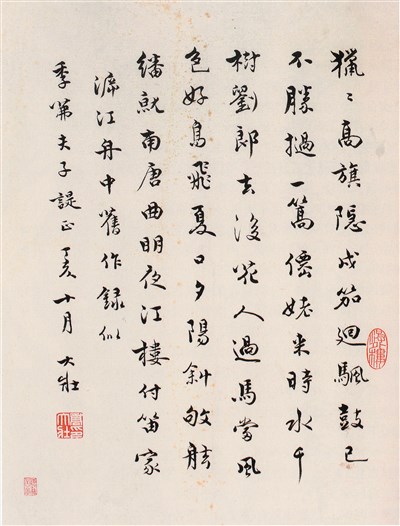 獵〻高旗隱戍笳迴颿鼓已
不勝撾一篙僊姥来時水千
樹劉郎去後花人過馬當風
色好鳥飛夏口夕陽斜敂舷
繙就南唐曲明夜江樓付笛家
江舟中舊作録似
季茀夫子諟正 丁亥十月 大壯